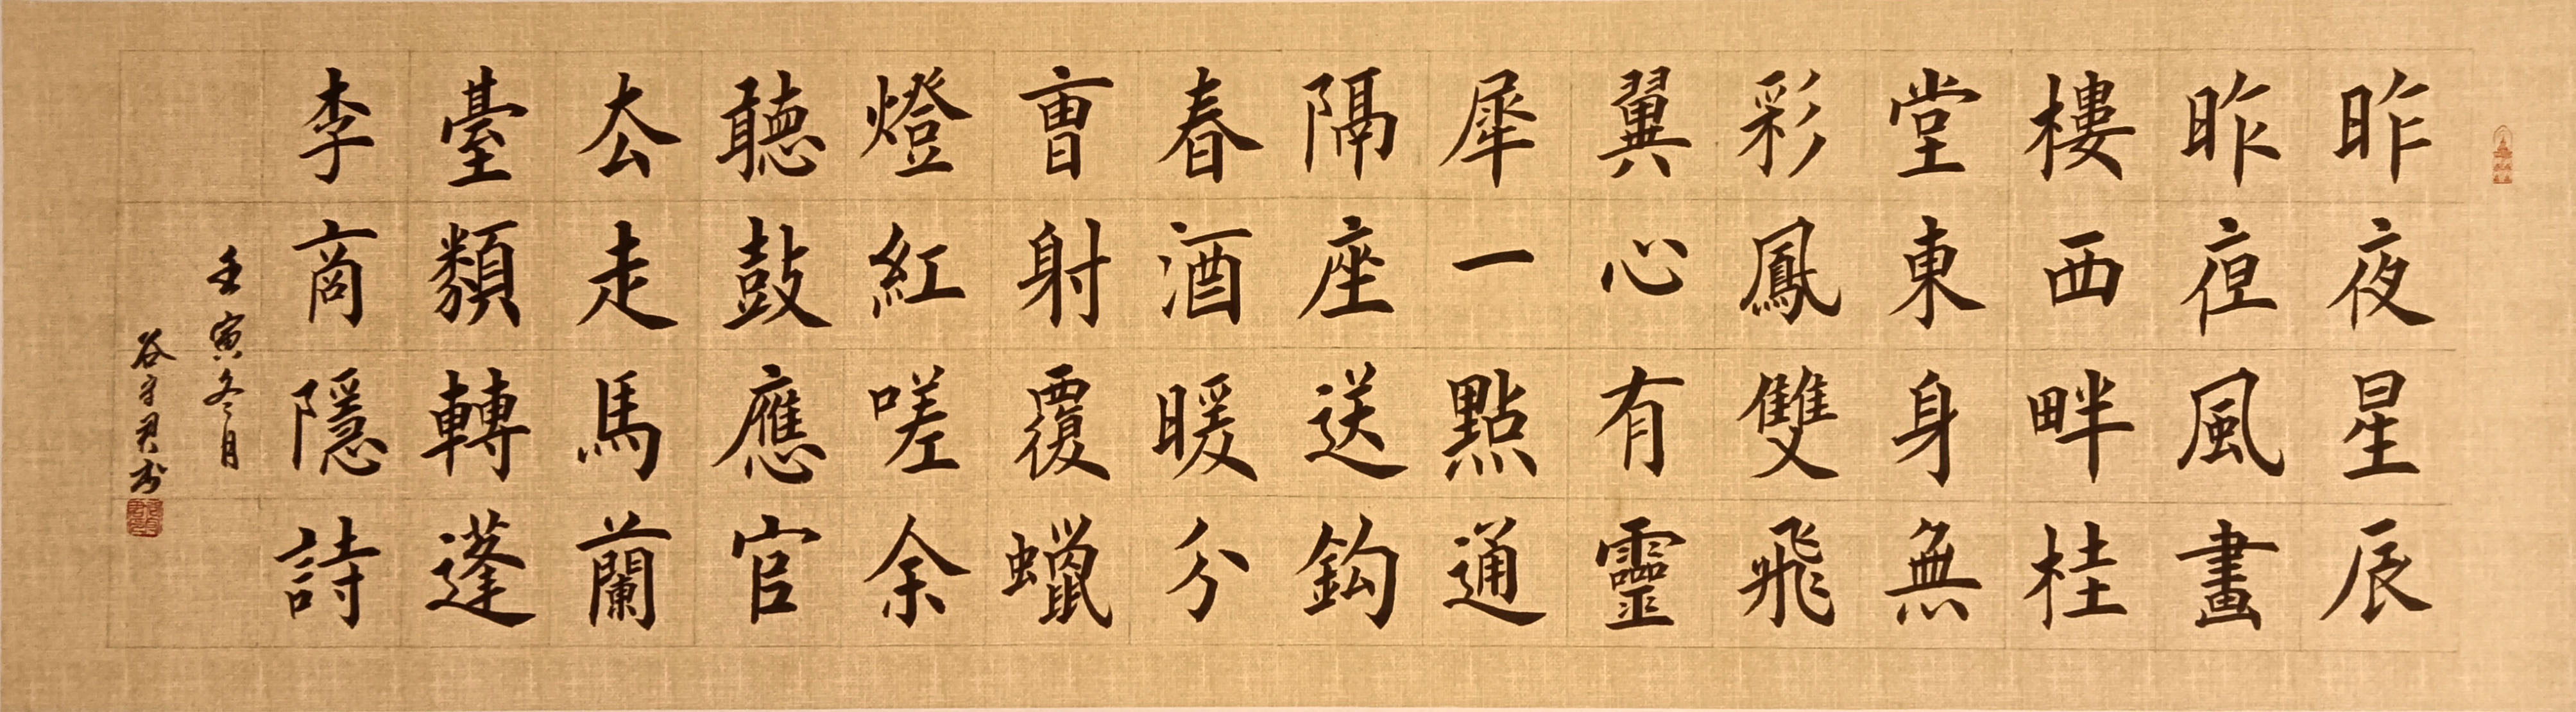 昨夜星辰
昨亱風畫
樓西畔桂
堂東身無
彩鳳雙飛
翼心有靈
犀一點通
隔座送鈎
春酒暖分
曹射覆蠟
燈紅嗟余
聽鼓應官
去走馬蘭
臺類轉蓬
李商隱詩
壬寅冬月
谷守君书